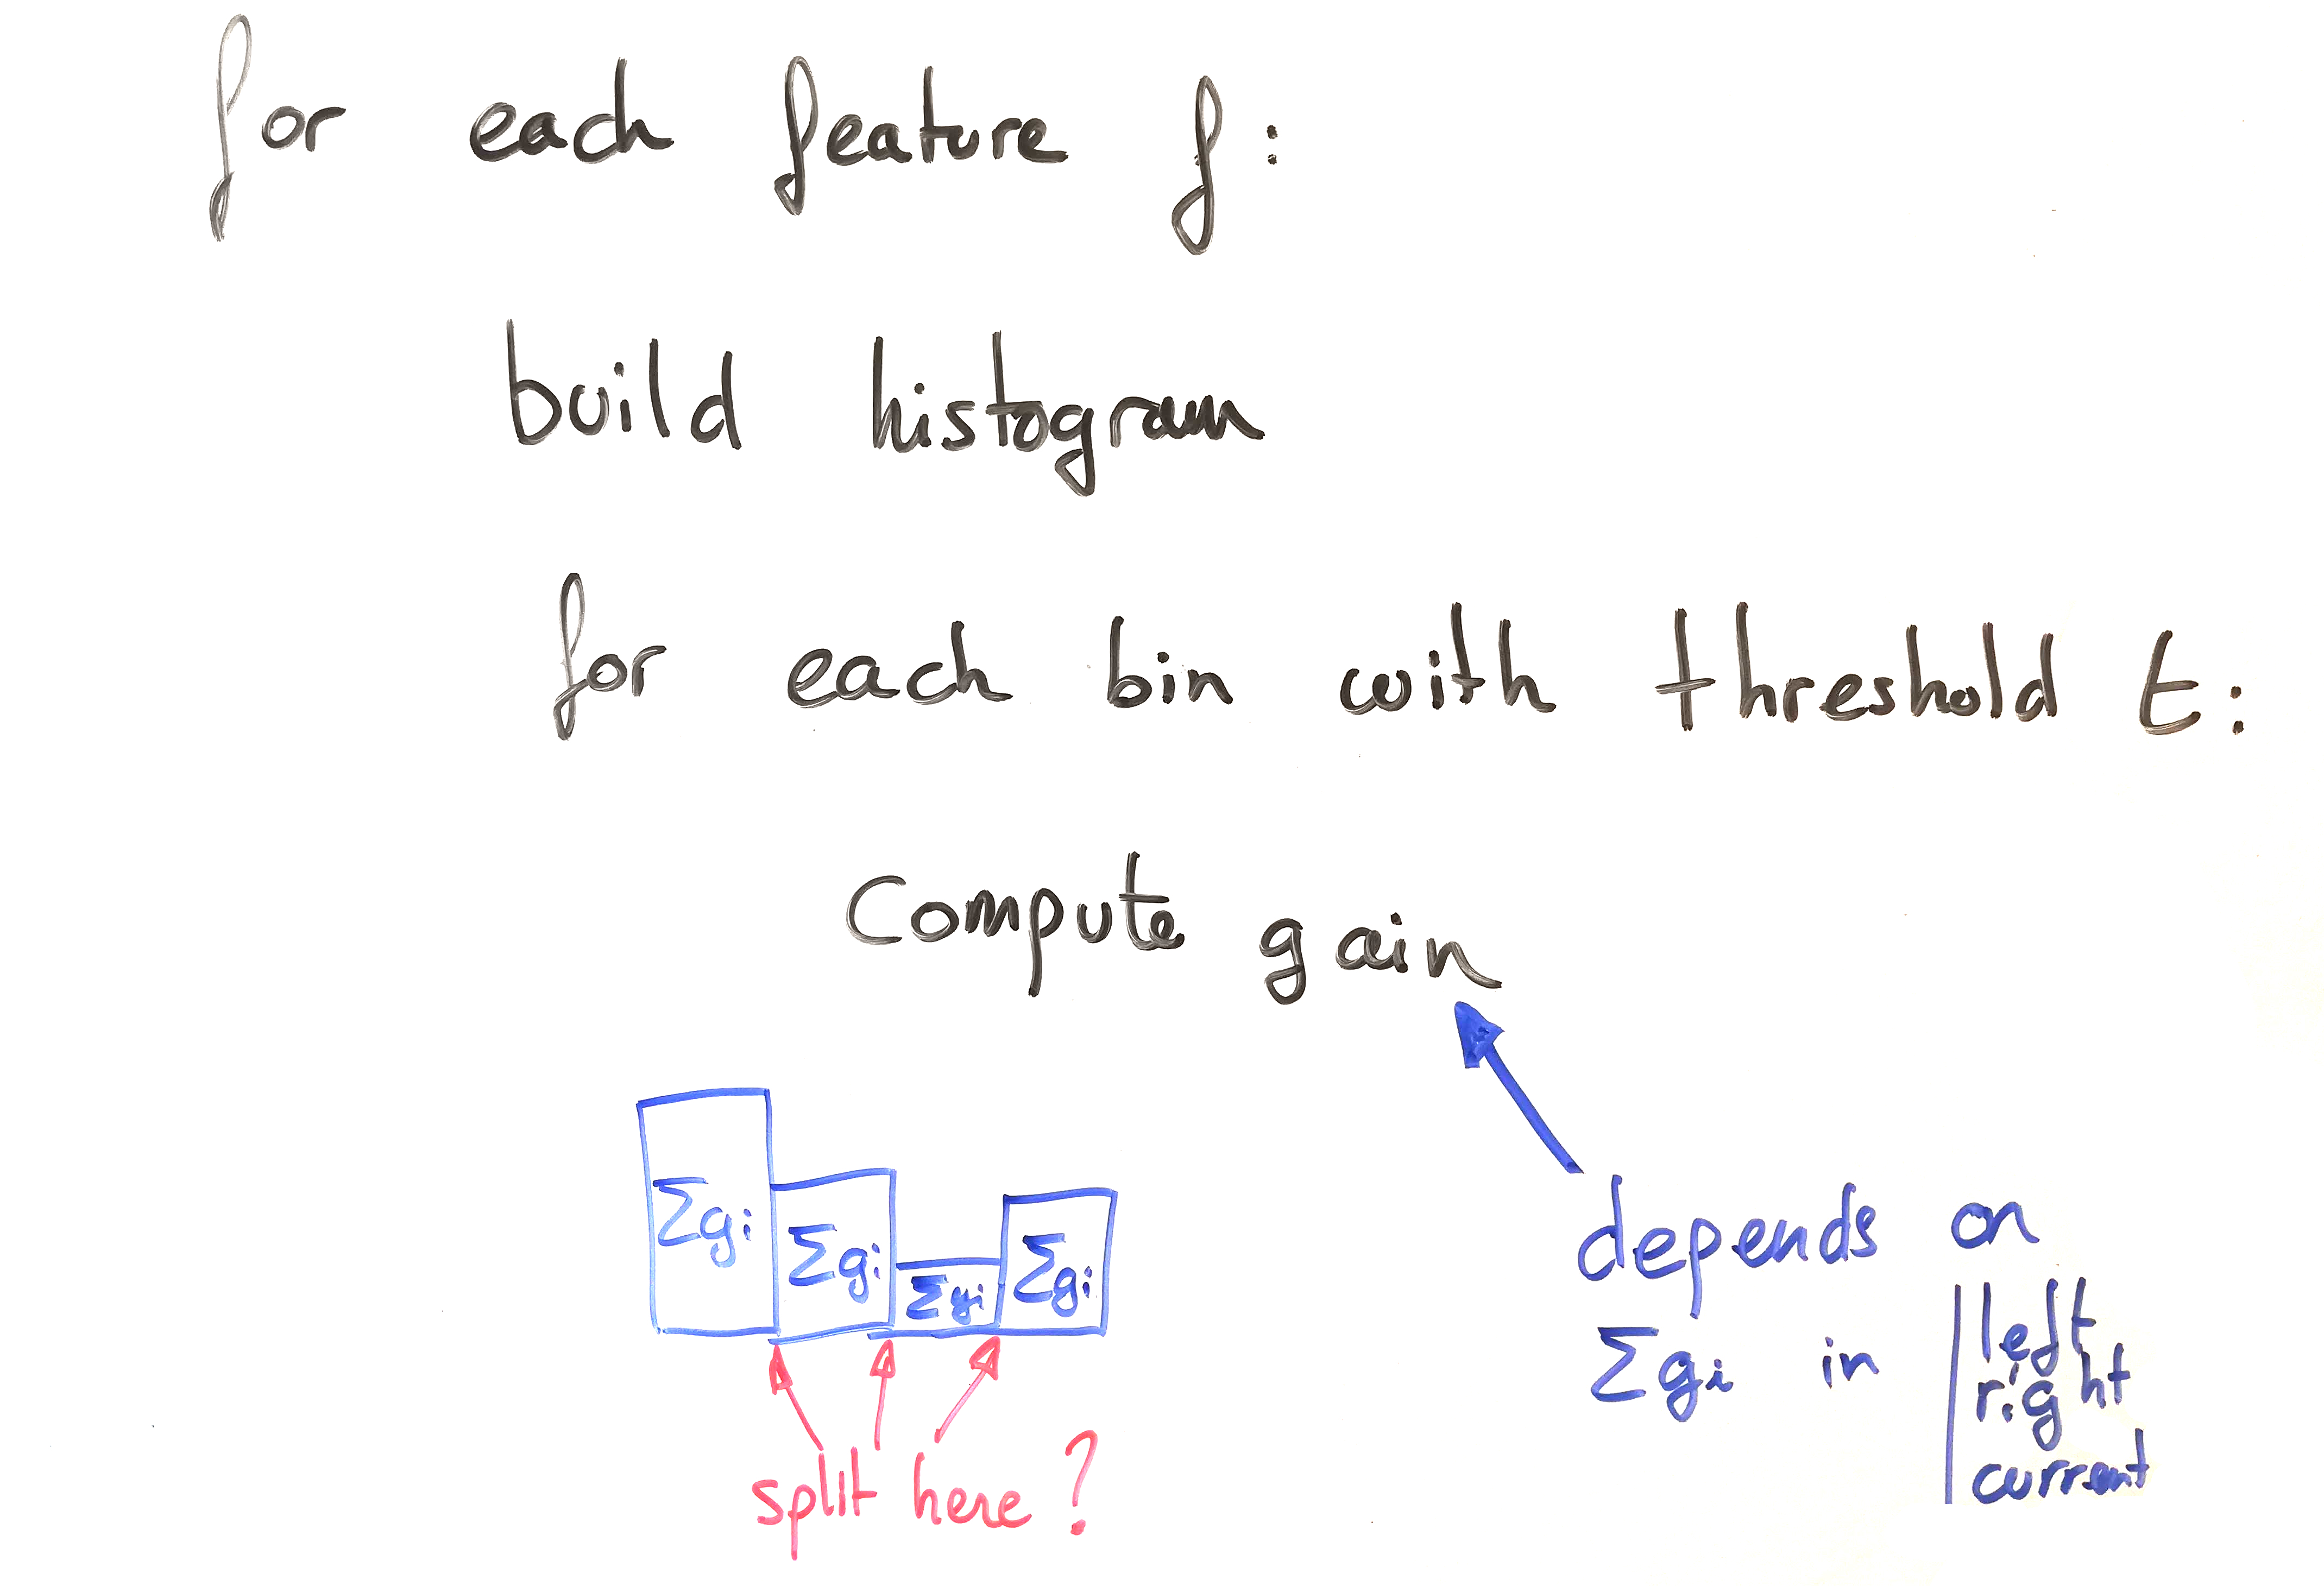 for each feature f:
build histogram
for each bin with threshold t:
Compute gain
Σgi
Σgi
Σgi
Σgi
split here ?
depends on
Σgi in
left
right
current